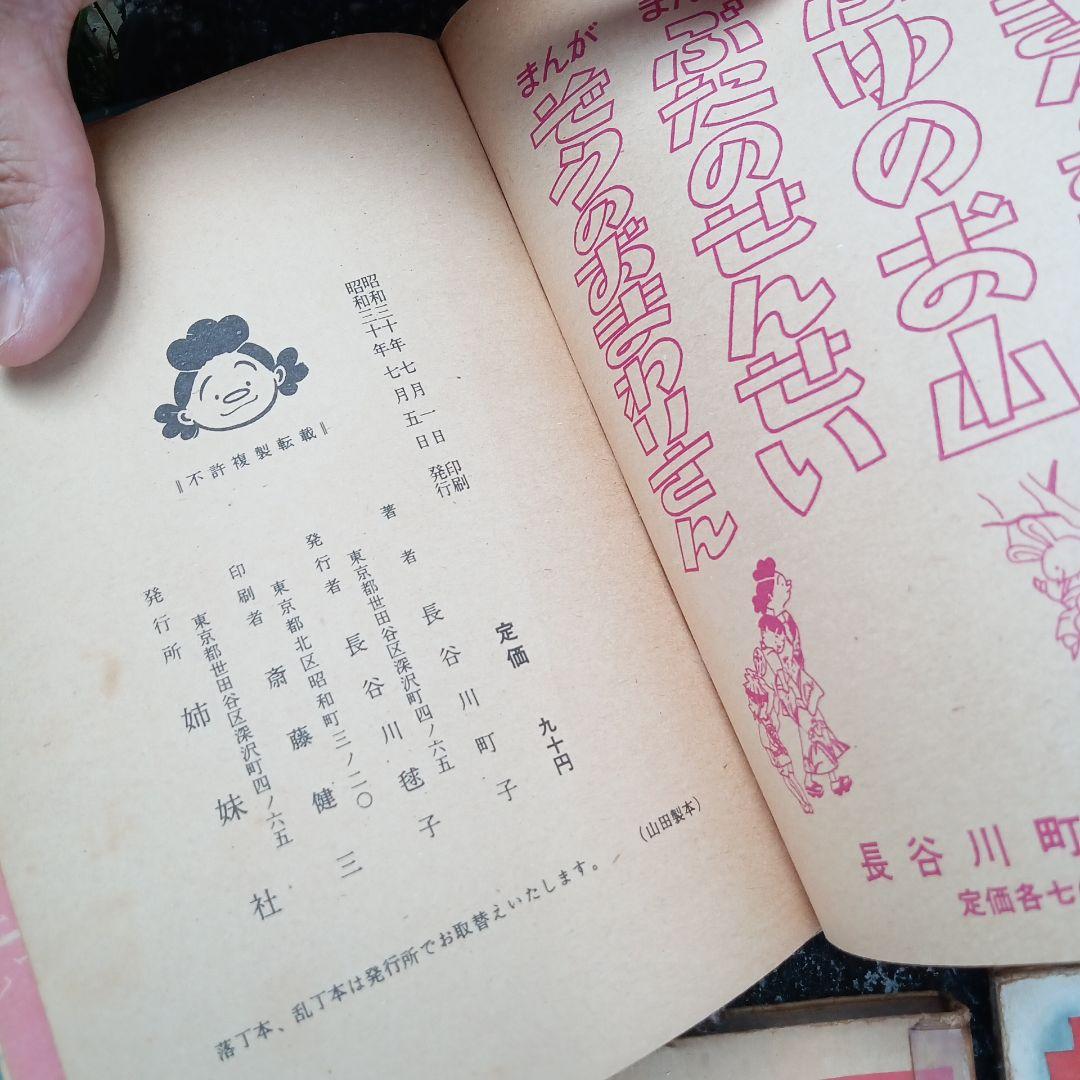 まんが
ふゆのお山
まん
ぶたのせんせい
まんが
ぞうのおまわりさん
長谷川町
定価各七
昭和三十年七月一日印刷
昭和三十年七月五日発行
定価 九十円
著者 長谷川町子
東京都世田谷区深沢町四ノ六五
発行者 長谷川毬子
東京都北区昭和町三ノ二〇
印刷者 斎藤健三
東京都世田谷区深沢町四ノ六五
発行所 姉妹社
〓不許複製転載〓
(山田製本)
落丁本、乱丁本は発行所でお取替えいたします。